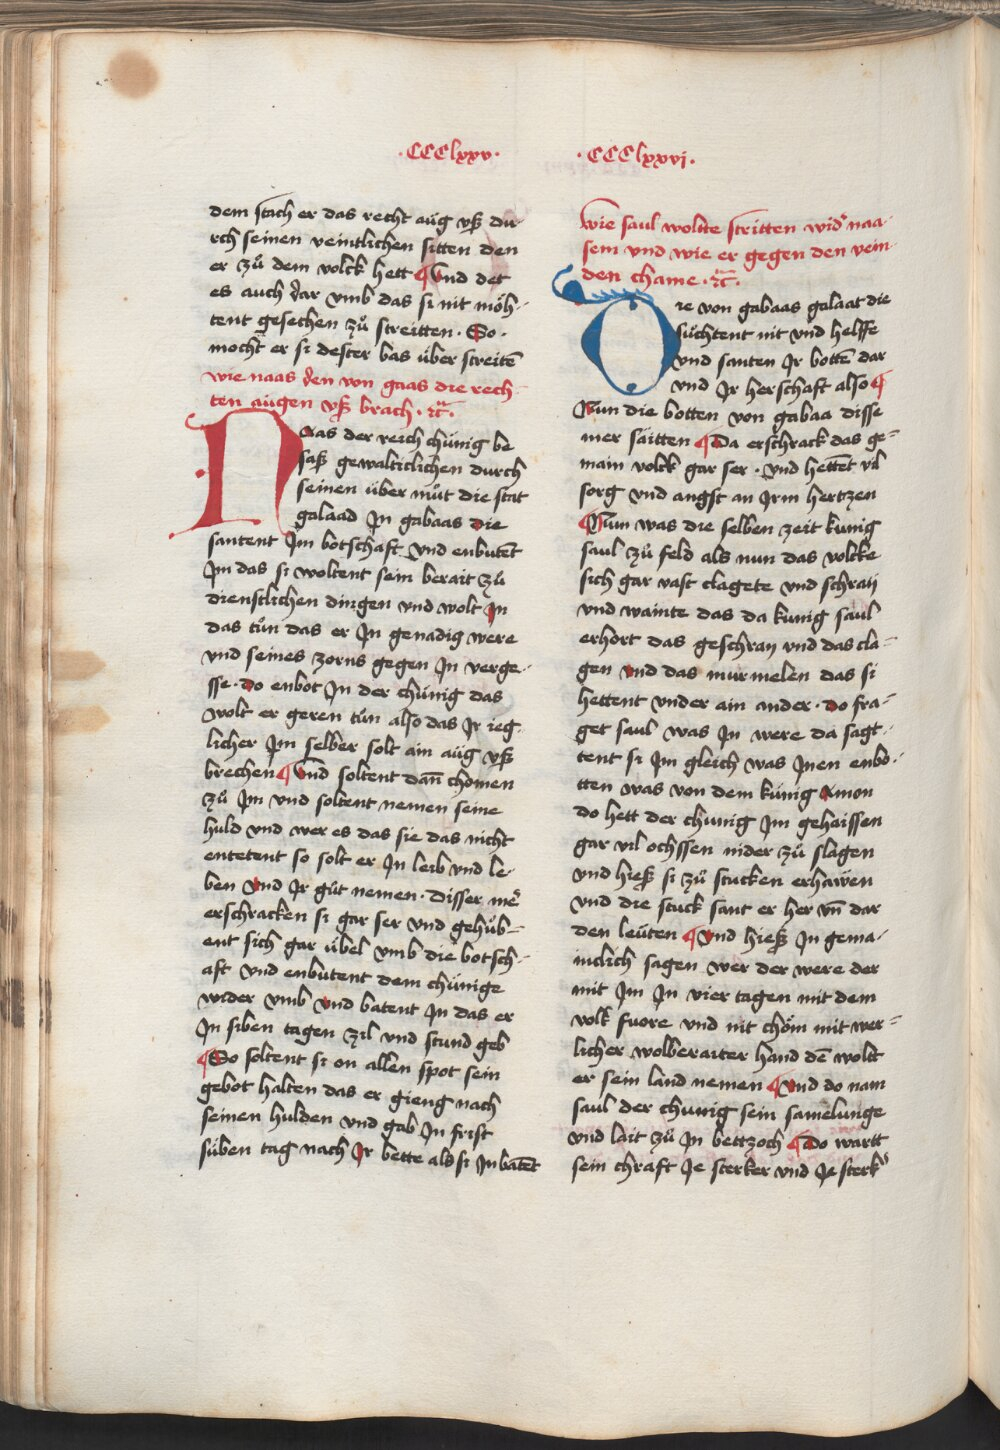 ·CCClxxv·
dem stach er das recht aüg vsß du-
rch seinen veintlichen sitten den
er zů dem volck hett ¶ Vnd det
es auch dar vmb das si nit möh-
tent gesechen zů streitten · So ·
mocht er si dester bas über streitē
wie naas den von gaas die rech-
ten augen vsß brach · ꝛc̄ ·
Naas der reich chünig be
saß gewalticlichen durch
seinen über můt die stat
galaad Jn gabaas die
santent Jm botschaft vnd enbutēt
Jm das si woltent sein berait zů
dienstlichen dingen vnd wolt Jn
das tůn das er Jn genadig were
vnd seines zorns gegen Jn verge-
sse · do enbot Jn der chünig das
wolt er geren tůn also das Jr ieg
licher Jm selber solt ain aüg vsß
brechen ¶ Vnd soltent dañ chomen
zů Jm vnd soltent nemen seine
huld vnd wer es das sie das nicht
entetent so solt er Jn leib vnd le-
ben Vnd Jr gůt nemen · Disser me᷑
erschracken si gar ser vnd gehůb-
ent sich gar übel vmb die botsch-
aft vnd enbütent dem chünige
wider vmb Vnd batent Jn das er
Jn siben tagen zil vnd stund geb
¶ So soltent si on allen spot sein
gebot halten das er gieng nach
seinen hulden vnd gab Jn frist
süben tag nach Jr bette als si Jn batēt
·CCClxxvi·
Wie saul wolte stritten wid᷑ naa-
sem vnd wie er gegen den vein-
den chame · ꝛc̄ ·
Dre von gabaas galaat die
süchtent nit vnd helffe
vnd santen Jr bottē dar
vnd Jr herschaft also ¶
Nun die botten von gabaa disse
mer säitten ¶ Da erschrack das ge-
main volck gar ser · vnd hettēt vil
sorg vnd angst an Jrm hertzen
¶ Nun was die selben zeit kunig
saul zů feld als nun das volcke
sich gar vast clagete vnd schraÿ
vnd wainte das da kunig saul
erhort das geschray vnd das cla-
gen Vnd das mürmelen das si
hettent vnder ain ander · do fra-
get saul was Jn were da sagt-
tent si Jm gleich was Jnen enbo-
tten was von dem künig Amon
do hett der chunig Jm gehaissen
gar vil ochssen nider zů slagen
vnd hieß si zů stucken erhawen
vnd die stuck sant er her vn̄ dar
den leüten ¶ Vnd hieß Jn gema-
inclich sagen wer der were der
mit Jm Jn vier tagen mit dem
volk fuore vnd nit chöm mit wer-
licher wolberaiter hand dē wolt
er sein land nemen ¶ Vnd do nam
saul der chunig sein samelunge
vnd lait zů Jn bettzoch ¶ Do wartt
sein chraft Je sterker vnd Je sterk᷑